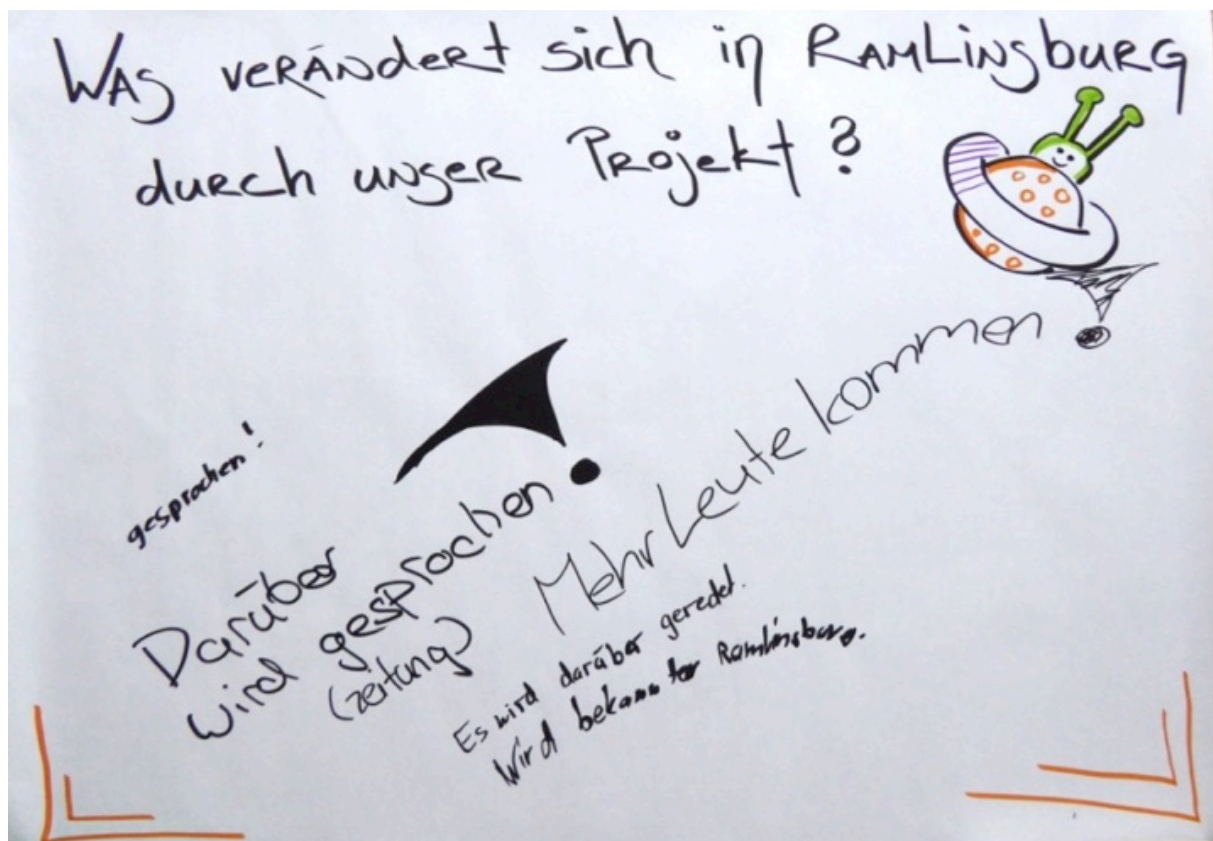 WAS VERÄNDERT sich in RAMLINSBURG
durch unser Projekt?
gesprochen!
Darüber
wird gesprochen!
(zeitung)
Mehr Leute kommen!
Es wird darüber geredet.
Wird bekannter Ramlinsburg.